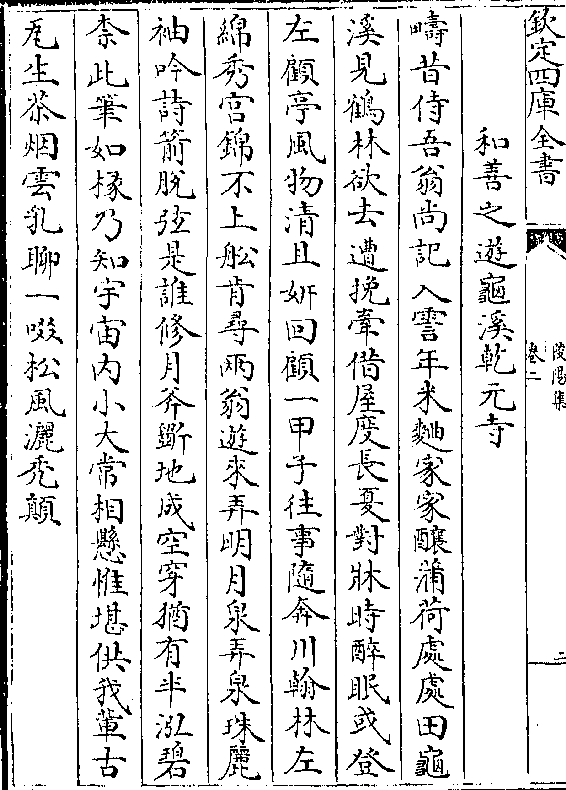 欽定四庫全書
陵陽集
卷二
二
和善之遊龜溪乾元寺
疇昔侍吾翁尚記入霅年米麯家家釀蒲荷處處田龜
溪見鶴林欲去遭挽牽借屋度長夏對牀時醉眠或登
左顧亭風物清且妍回顧一甲子往事隨奔川翰林左
綿秀宫錦不上舩肯尋兩翁遊來弄明月泉弄泉珠麗
袖吟詩箭脫弦是誰修月斧斸地成空穿猶有半泓碧
柰此筆如椽乃知宇宙内小大常相懸惟堪供我軰古
瓦生茶烟雲乳聊一啜松風灑禿顛